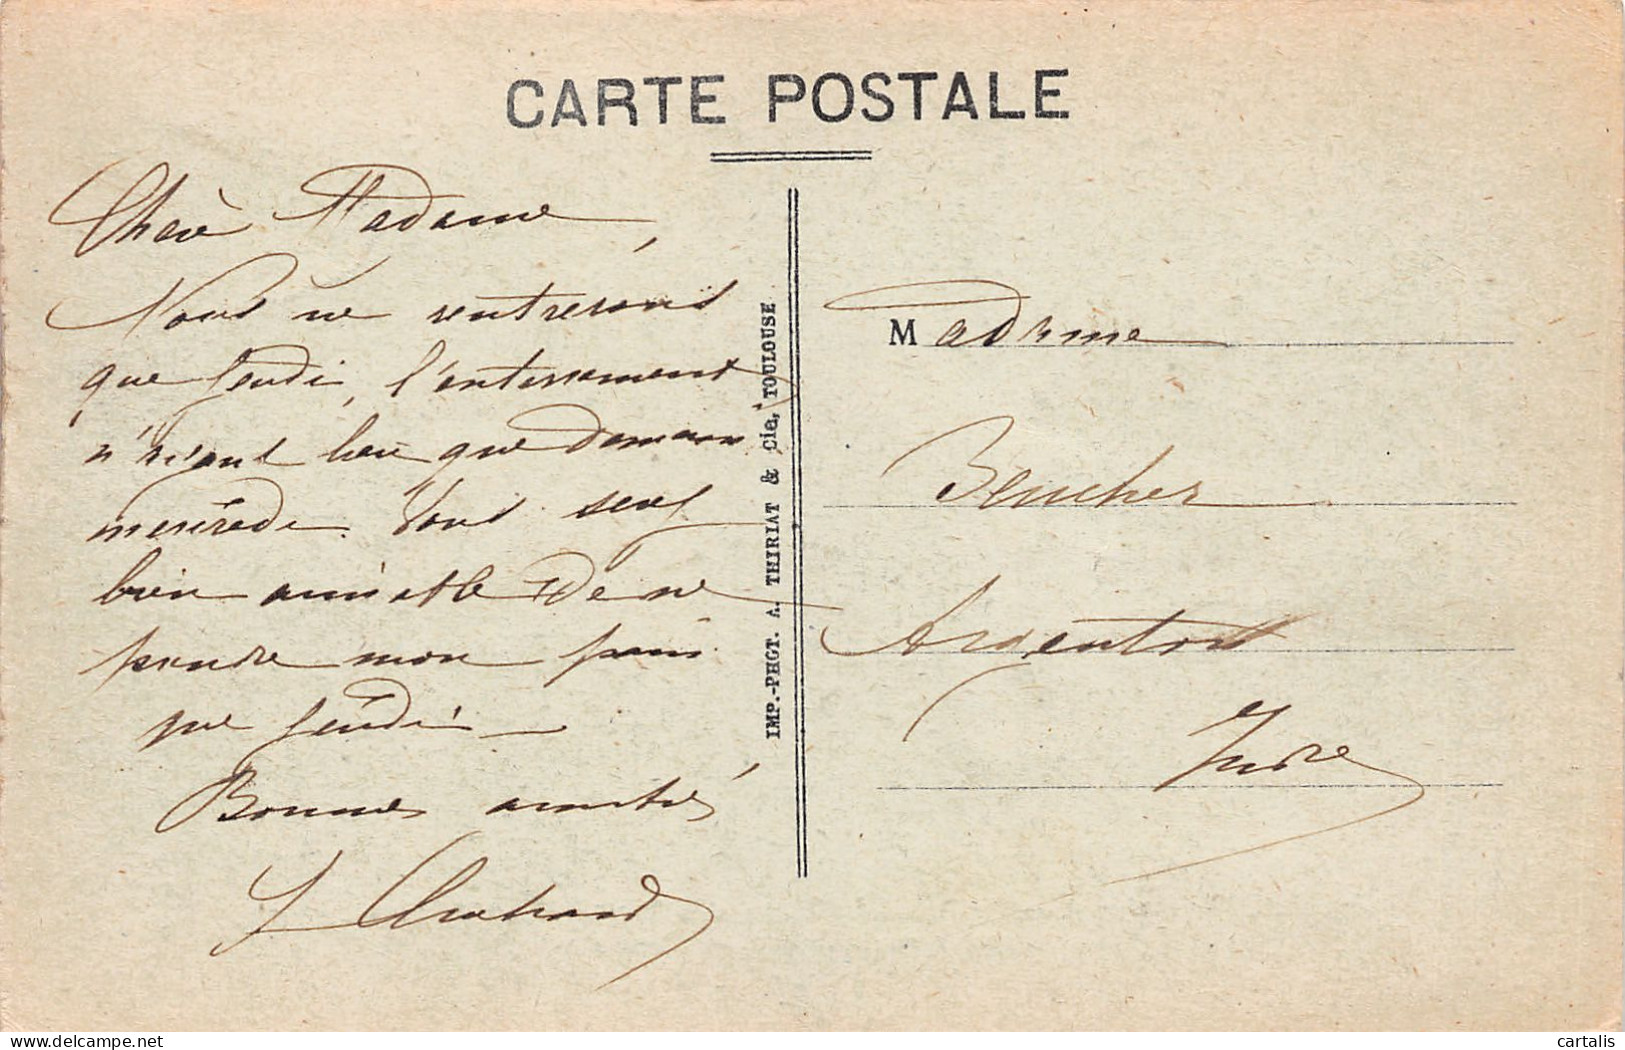 CARTE POSTALE
Chère Madame,
Nous ne rentrerons
que Jeudi, l'enterrement
n'ayant lieu que demain
mercredi. Vous serez
bien aimable de ne
prendre mon pain
que Jeudi
Bonnes amitiés
J.
IMP.-PHOT. A. THIRIAT & Cie, TOULOUSE
Madame
Beucher
Argenton
Indre
cartalis
delcampe.net